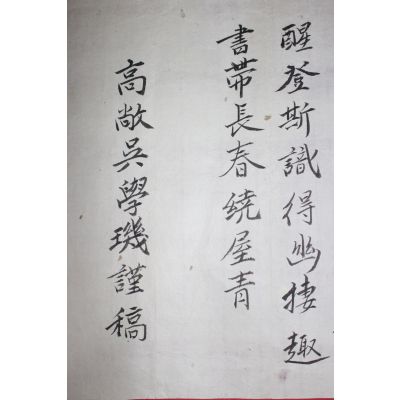 醒登斯識得幽捿趣
書帶長春繞屋青
高敞吳學璣謹稿